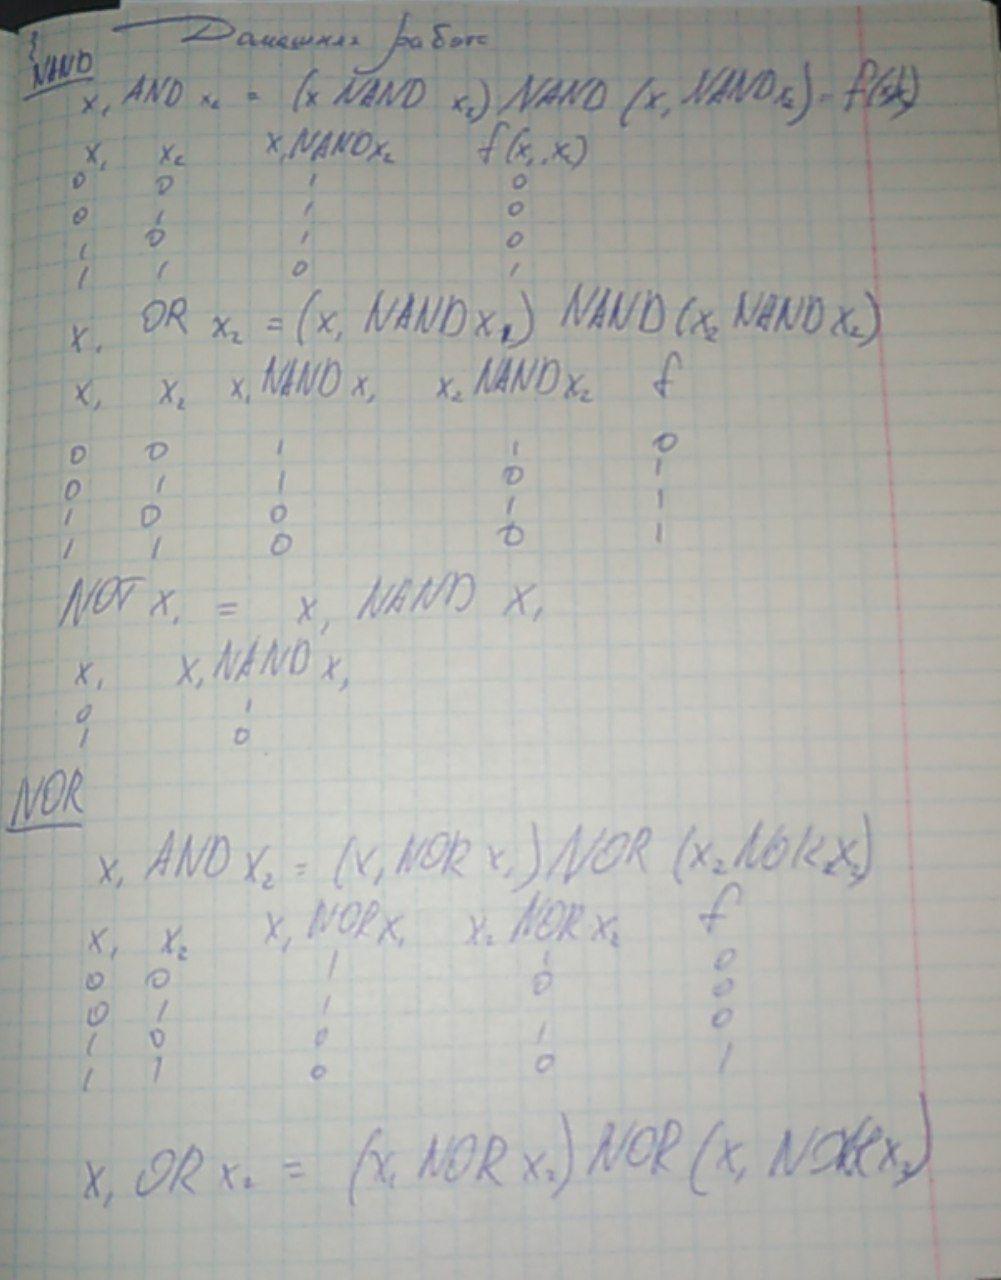 Домашняя работа
NAND
x₁ AND x₂ = (x NAND x₂) NAND (x₁ NAND x₂) = f(
x₁ x₂ x₁ NAND x₂ f(x₁, x₂)
0 0 1 0
0 1 1 0
1 0 1 0
1 1 0 1
x₁ OR x₂ = (x₁ NAND x₁) NAND (x₂ NAND x₂)
x₁ x₂ x₁ NAND x₁ x₂ NAND x₂ f
0 0 1 1 0
0 1 1 0 1
1 0 0 1 1
1 1 0 0 1
NOT x₁ = x₁ NAND x₁
x₁ x₁ NAND x₁
0 1
1 0
NOR
x₁ AND x₂ = (x₁ NOR x₁) NOR (x₂ NOR x₂)
x₁ x₂ x₁ NOR x₁ x₂ NOR x₂ f
0 0 1 1 0
0 1 1 0 0
1 0 0 1 0
1 1 0 0 1
x₁ OR x₂ = (x₁ NOR x₂) NOR (x₁ NOR x₂)